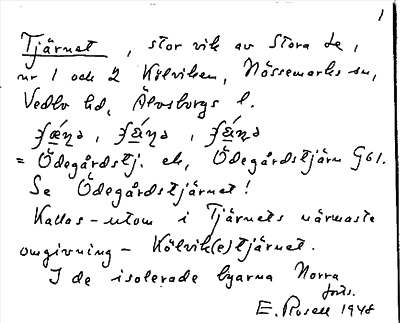 1
Tjärnet, stor vik av Stora Le,
nr 1 och 2 Kölviken, Nössemarks sn,
Vedbo hd, Älvsborgs l.
= Ödegårdstj. el. Ödegårdstjärn G61.
Se Ödegårdstjärnet!
Kallas – utom i Tjärnets närmaste
omgivning – Kölvik(e)tjärnet.
I de isolerade byarna Norra
forts.
E. Rosell 1948